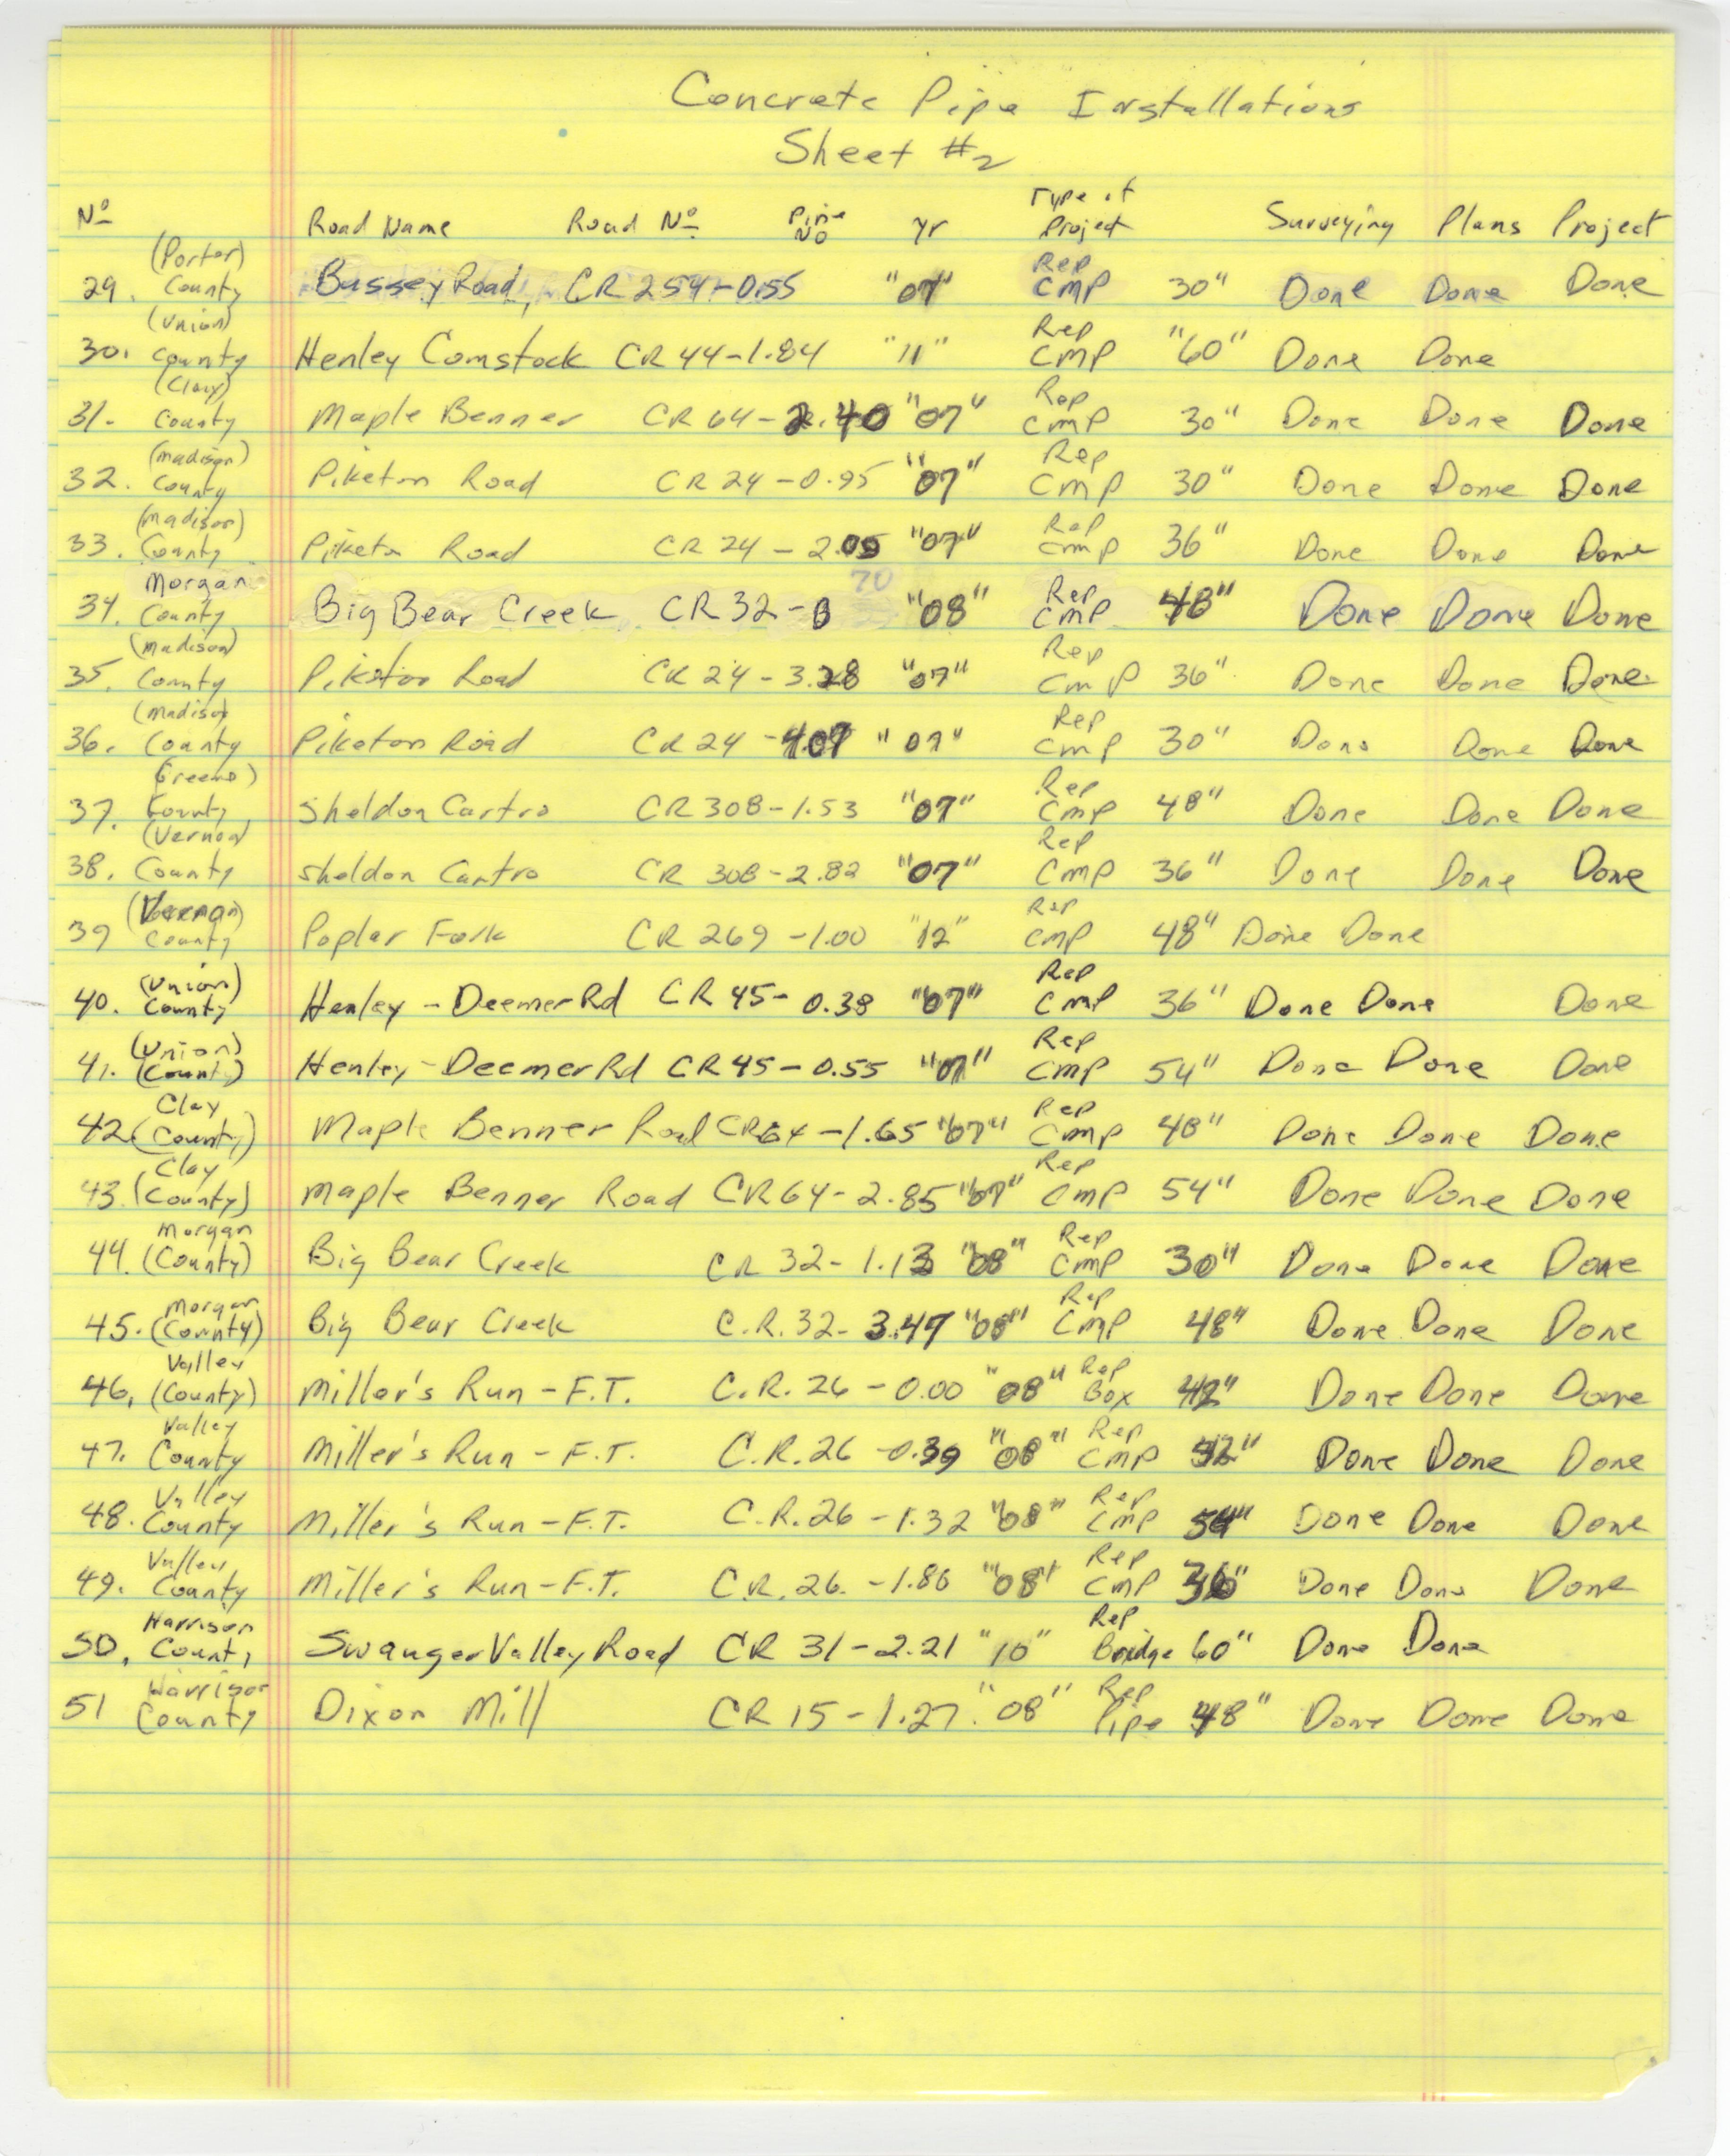 Concrete Pipe Installations
Sheet #2
Nº Road Name Road Nº Pipe No Yr Type of Project Surveying Plans Project
29. (Porter) County Bussey Road, CR 254-0.55 "07" Rep CMP 30" Done Done Done
30. (Union) County Henley Comstock CR 44-1.84 "11" Rep CMP "60" Done Done
31. (Clay) County Maple Benner CR 64-2.40 "07" Rep CMP 30" Done Done Done
32. (Madison) County Piketon Road CR 24-0.95 "07" Rep CMP 30" Done Done Done
33. (Madison) County Piketon Road CR 24-2.05 "07" Rep CMP 36" Done Done Done
34. Morgan County Big Bear Creek CR 32-0 70 "08" Rep CMP 48" Done Done Done
35. (Madison) County Piketon Road CR 24-3.28 "07" Rep CMP 36" Done Done Done
36. (Madison) County Piketon Road CR 24-4.07 "07" Rep CMP 30" Done Done Done
37. (Greene) County Sheldon Castro CR 308-1.53 "07" Rep CMP 48" Done Done Done
38. (Vernon) County Sheldon Castro CR 308-2.82 "07" Rep CMP 36" Done Done Done
39 (Vernon) County Poplar Fork CR 269-1.00 "12" Rep CMP 48" Done Done
40. (Union) County Henley-Deemer Rd CR 45-0.38 "07" Rep CMP 36" Done Done Done
41. (Union) (County) Henley-Deemer Rd CR 45-0.55 "07" Rep CMP 54" Done Done Done
42. Clay (County) Maple Benner Road CR 64-1.65 "07" Rep CMP 48" Done Done Done
43. Clay (County) Maple Benner Road CR 64-2.85 "07" Rep CMP 54" Done Done Done
44. Morgan (County) Big Bear Creek CR 32-1.13 "08" Rep CMP 30" Done Done Done
45. Morgan (County) Big Bear Creek C.R. 32-3.47 "08" Rep CMP 48" Done Done Done
46. Valley (County) Miller's Run-F.T. C.R. 26-0.00 "08" Rep Box 42" Done Done Done
47. Valley County Miller's Run-F.T. C.R. 26-0.39 "08" Rep CMP Done Done Done
48. Valley County Miller's Run-F.T. C.R. 26-1.32 "08" Rep CMP 54" Done Done Done
49. Valley County Miller's Run-F.T. C.R. 26.-1.86 "08" Rep CMP 36" Done Done Done
50. Harrison County Swanger Valley Road CR 31-2.21 "10" Rep Bridge 60" Done Done
51 Harrison County Dixon Mill CR 15-1.27. "08" Rep Pipe 48" Done Done Done